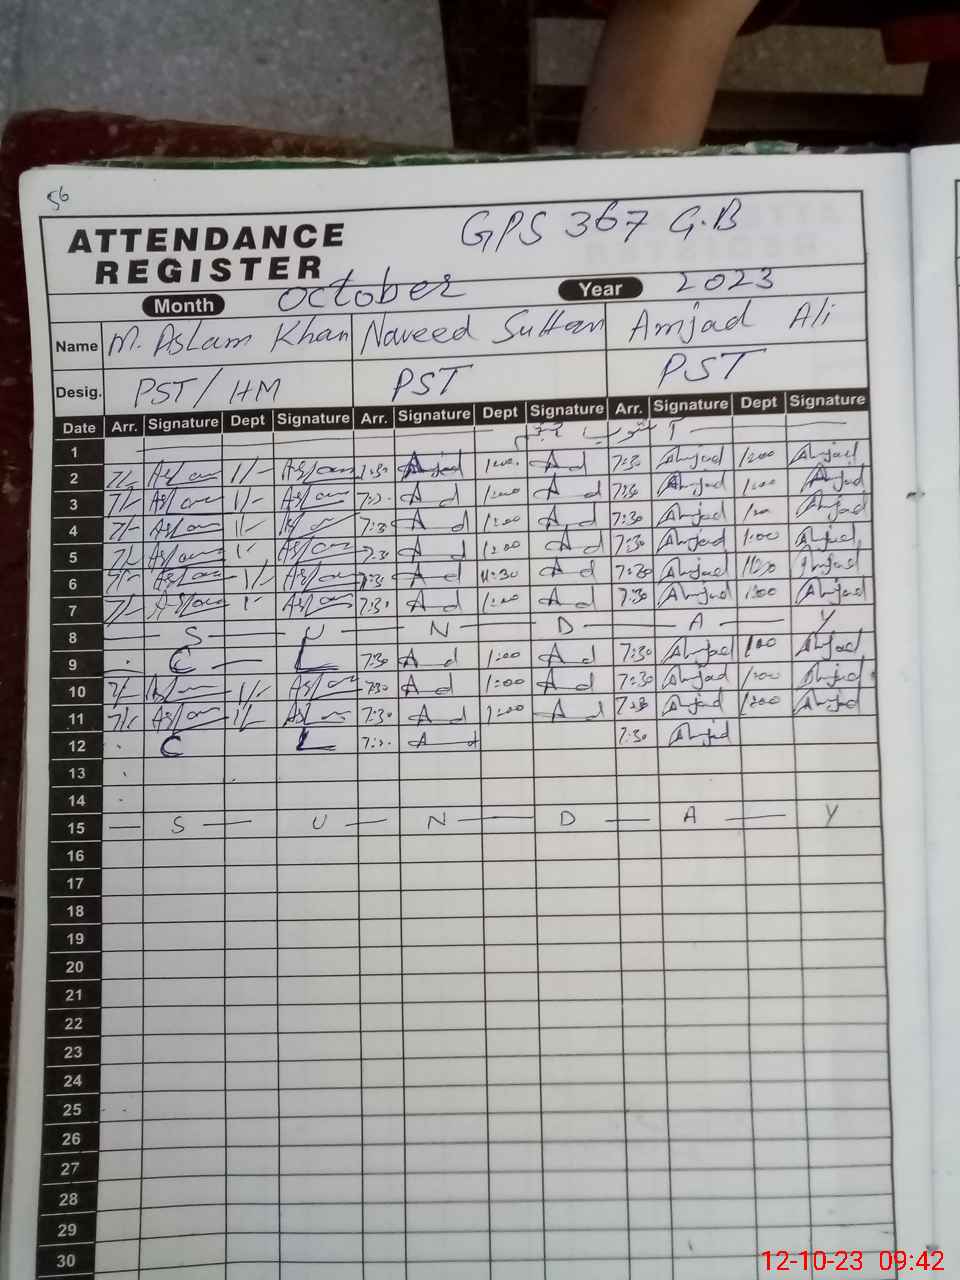 56
ATTENDANCE REGISTER GPS 367 G.B
Month October Year 2023
Name M. Aslam Khan Naveed Sultan Amjad Ali
Desig. PST/HM PST PST
Date Arr. Signature Dept Signature Arr. Signature Dept Signature Arr. Signature Dept Signature
1
2 7/- Aslam 1/- Aslam 7:30 7:30 Amjad 1:00 Amjad
3 7/- Aslam 1/- Aslam A d 1:00 A d 7:30 Amjad 1:00 Amjad
4 7/- Aslam 1/- 7:30 A d 1:00 A d 7:30 Amjad Amjad
5 7/- Aslam Aslam 7:30 A d 1:00 A d 7:30 Amjad 1:00 Amjad
6 7/- Aslam 1/- Aslam 7:30 A d 11:30 A d 7:30 Amjad Amjad
7 7/- Aslam Aslam 7:30 A d 1:00 A d 7:30 Amjad 1:00 Amjad
8 — S — U — N — D — A — Y
9 C — L 7:30 A d 1:00 A d 7:30 Amjad 1:00 Amjad
10 7/- Aslam 1/- Aslam 7:30 A d 1:00 A d 7:30 Amjad 1:00 Amjad
11 7/- Aslam 1/- Aslam 7:30 A d 1:00 A d 7:30 Amjad 1:00 Amjad
12 C L A d 7:30 Amjad
13
14
15 — S — U — N — D — A — Y
16
17
18
19
20
21
22
23
24
25
26
27
28
29
30
12-10-23 09:42